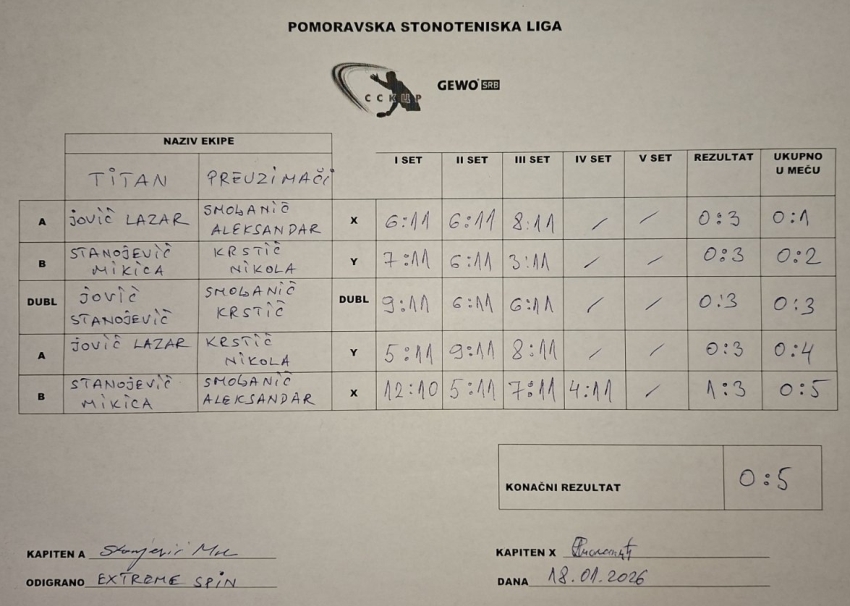 POMORAVSKA STONOTENISKA LIGA
ССКЦР GEWO SRB
NAZIV EKIPE
TITAN PREUZIMAČI I SET II SET III SET IV SET V SET REZULTAT UKUPNO U MEČU
A JOVIĆ LAZAR SMOLANIĆ ALEKSANDAR X 6:11 6:11 8:11 / / 0:3 0:1
B STANOJEVIĆ MIKICA KRSTIĆ NIKOLA Y 7:11 6:11 3:11 / / 0:3 0:2
DUBL JOVIĆ STANOJEVIĆ SMOLANIĆ KRSTIĆ DUBL 9:11 6:11 6:11 / / 0:3 0:3
A JOVIĆ LAZAR KRSTIĆ NIKOLA Y 5:11 9:11 8:11 / / 0:3 0:4
B STANOJEVIĆ MIKICA SMOLANIĆ ALEKSANDAR X 12:10 5:11 7:11 4:11 / 1:3 0:5
KONAČNI REZULTAT 0:5
KAPITEN A
KAPITEN X
ODIGRANO EXTREME SPIN
DANA 18.01.2026